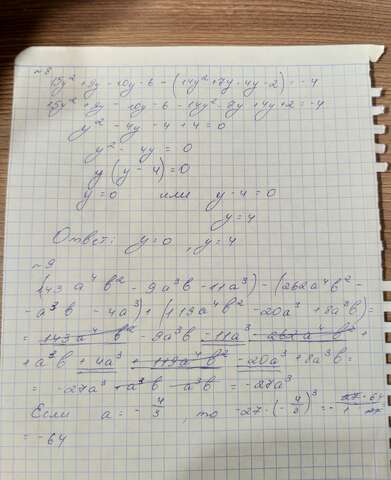 №8
15y² + 9y - 10y - 6 - (14y² + 7y - 4y - 2) = -4
15y² + 9y - 10y - 6 - 14y² - 7y + 4y + 2 = -4
y² - 4y - 4 + 4 = 0
y² - 4y = 0
y (y - 4) = 0
y = 0 или y - 4 = 0
y = 4
Ответ: y = 0, y = 4
№9
(143 a⁴ b² - 9a³b - 11a³) - (262a⁴b² -
- a³b - 4a³) + (119a⁴b² - 20a³ + 8a³b) =
= 143a⁴b² - 9a³b - 11a³ - 262a⁴b² +
+ a³b + 4a³ + 119a⁴b² - 20a³ + 8a³b =
= -27a³ - a³b = -27a³
Если a = - 4/3, то -27 · (- 4/3)³ = -
= -64